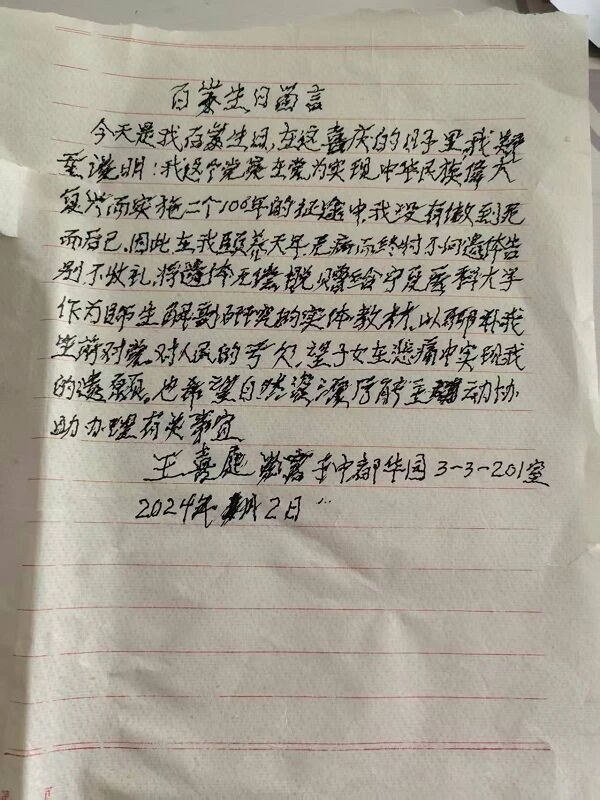 百岁生日留言
今天是我百岁生日,在这喜庆的日子里我郑
重说明:我这个党员在党为实现中华民族偉大
复兴而实施二个100年的征途中我没有做到死
而后已。因此在我颐养天年无病而终时不向遗体告
别不收礼,将遗体无偿捐赠给宁夏医科大学
作为师生解剖研究的实体教材。以聊补我
生前对党、对人民的亏欠,望子女在悲痛中实现我
的遗愿。也希望自然资源厅能主动协
助办理有关事宜
王喜庭 中都华园3-3-201室
2024年 月2日